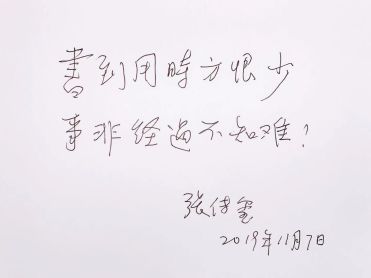 書到用時方恨少
事非经過不知难！
张传玺
2019年11月7日